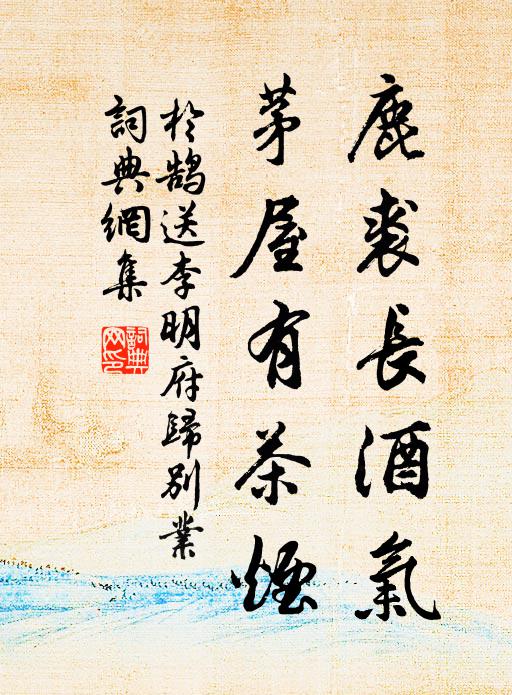 鹿裘長酒氣
茅屋有茶煙
於鵠送李明府歸別業
詞典網集
詞典網印